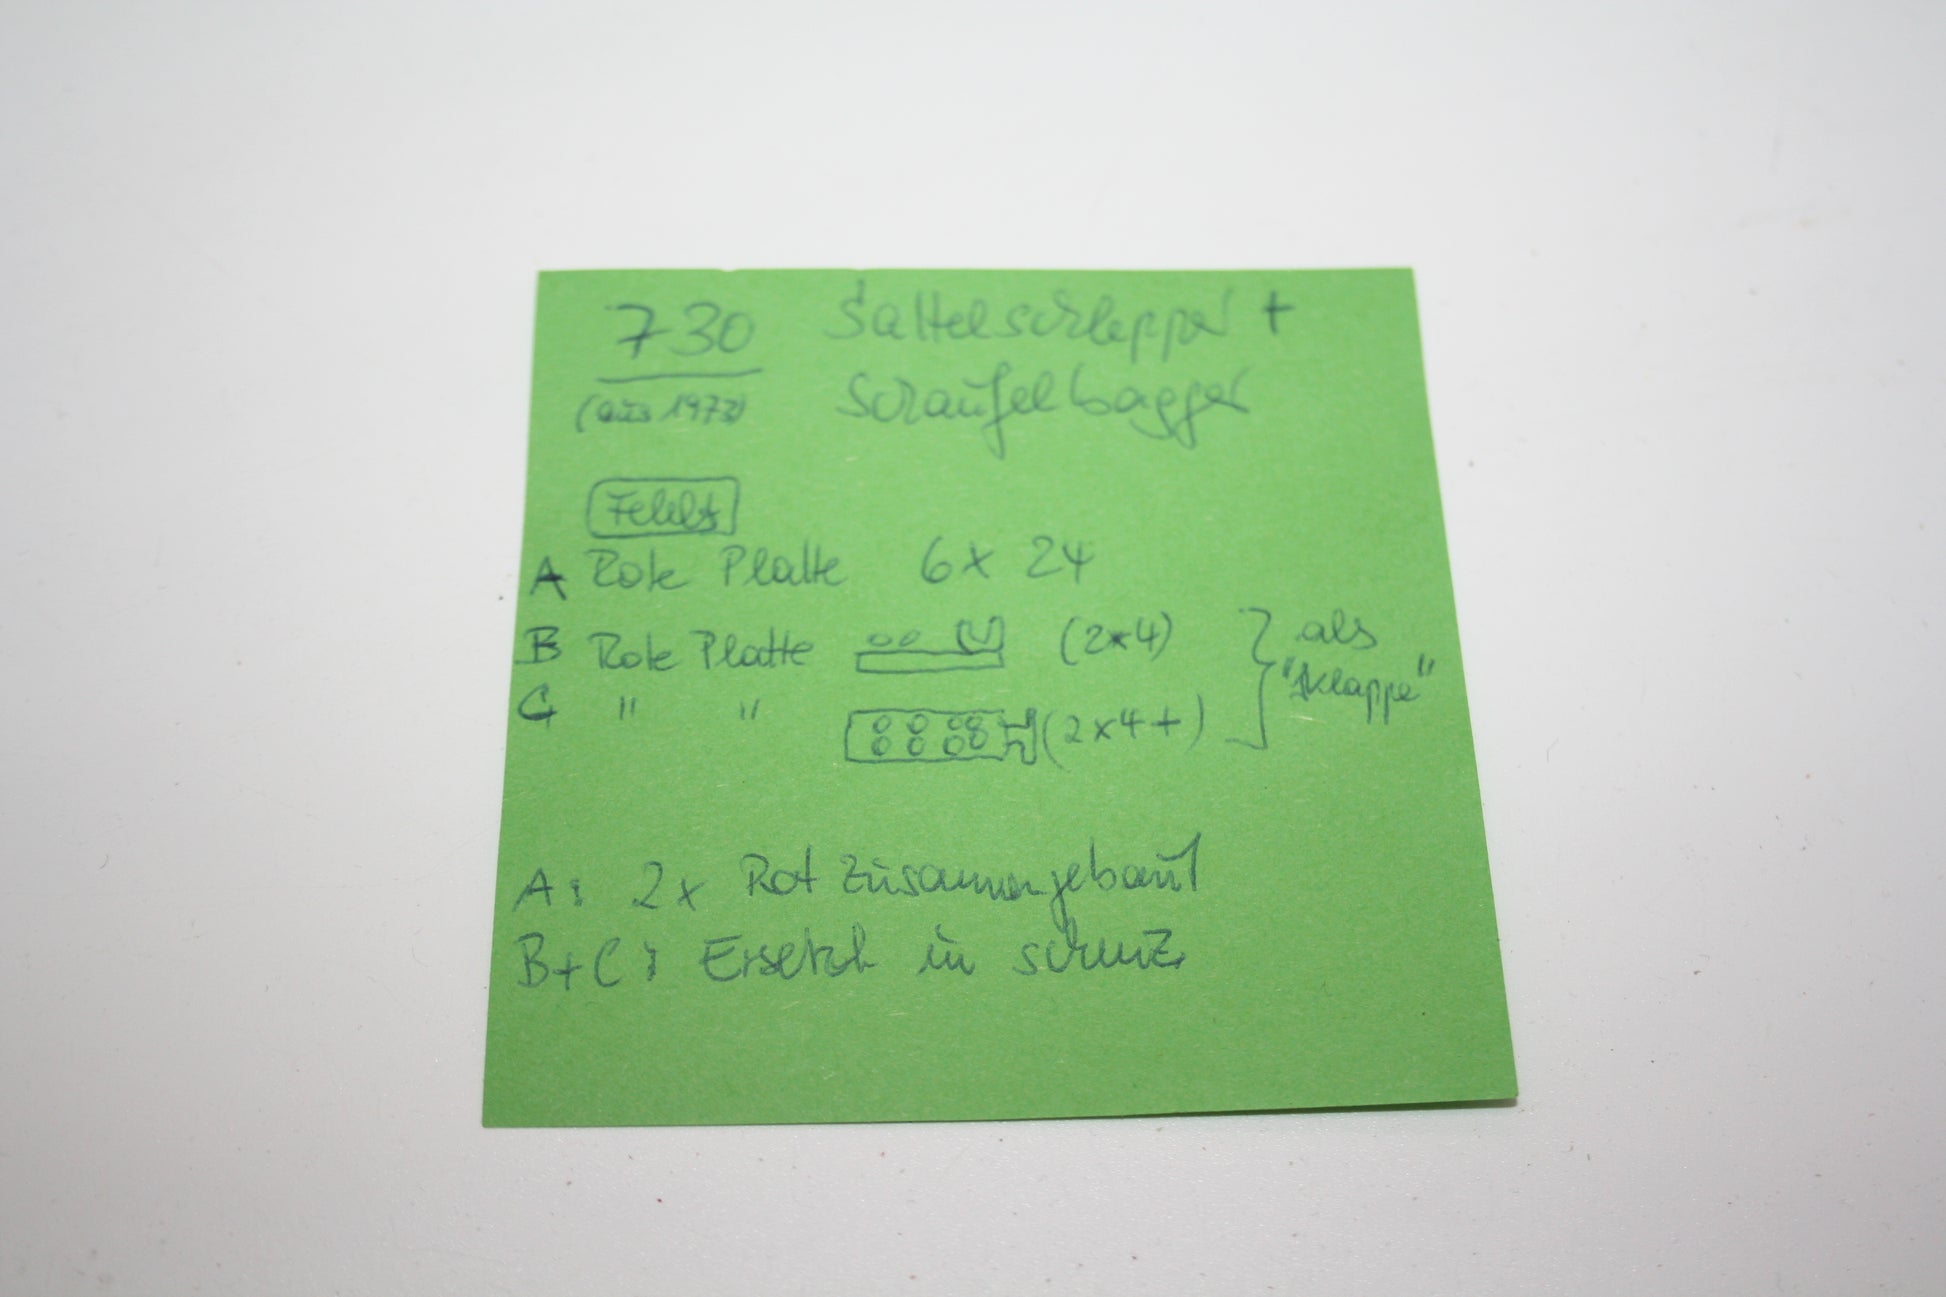 730 Sattelschlepper +
(aus 1973) Schaufelbagger
Fehlt
A Rote Platte 6x 24
B Rote Platte (2x4) } als
C " " (2x4+) "Klappe"
A: 2x Rot Zusammengebaut
B+C: Ersetzt in